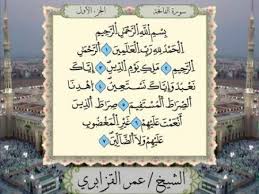 سورة الفاتحة
الجزء الأول
بِسْمِ اللَّهِ الرَّحْمَٰنِ الرَّحِيمِ
الْحَمْدُ لِلَّهِ رَبِّ الْعَالَمِينَ ١ الرَّحْمَٰنِ
الرَّحِيمِ ٢ مَٰلِكِ يَوْمِ الدِّينِ ٣ إِيَّاكَ
نَعْبُدُ وَإِيَّاكَ نَسْتَعِينُ ٤ اهْدِنَا
الصِّرَاطَ الْمُسْتَقِيمَ ٥ صِرَاطَ الَّذِينَ
أَنْعَمْتَ عَلَيْهِمْ ٦ غَيْرِ الْمَغْضُوبِ
عَلَيْهِمْ وَلَا الضَّالِّينَ ٧
الشيخ / عمر القزابري